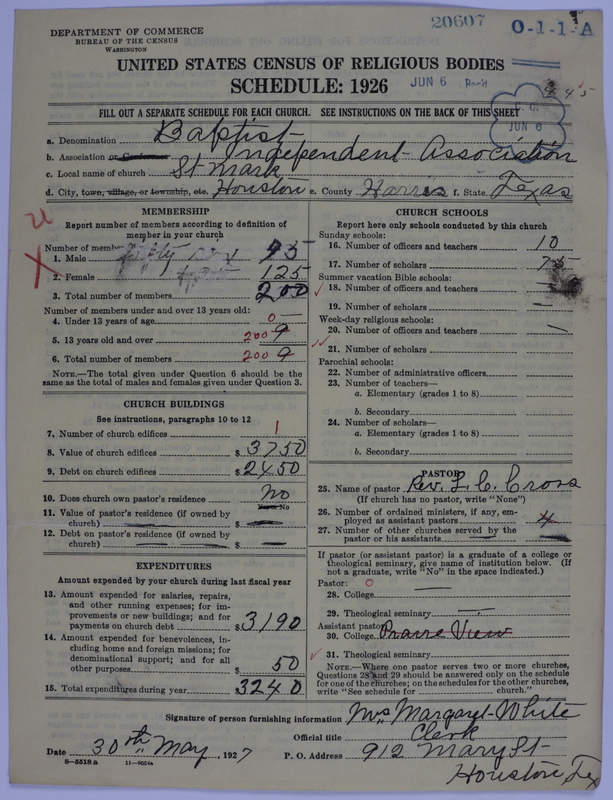 DEPARTMENT OF COMMERCE
BUREAU OF THE CENSUS
WASHINGTON
20607
O-1-1-A
UNITED STATES CENSUS OF RELIGIOUS BODIES
SCHEDULE: 1926
JUN 6 Rec'd
JUN 6
FILL OUT A SEPARATE SCHEDULE FOR EACH CHURCH. SEE INSTRUCTIONS ON THE BACK OF THIS SHEET
a. Denomination Baptist
b. Association or Conference Independent Association
c. Local name of church St Mark
d. City, town, village, or township, etc. Houston e. County Harris f. State Texas
MEMBERSHIP
Report number of members according to definition of
member in your church
Number of members:
1. Male 75
2. Female 125
3. Total number of members 200
Number of members under and over 13 years old:
4. Under 13 years of age 0 —
5. 13 years old and over 200 9
6. Total number of members 200 9
NOTE.—The total given under Question 6 should be the
same as the total of males and females given under Question 3.
CHURCH BUILDINGS
See instructions, paragraphs 10 to 12
7. Number of church edifices 1
8. Value of church edifices $ 3750
9. Debt on church edifices $ 2450
10. Does church own pastor's residence No
Yes or No
11. Value of pastor's residence (if owned by
church) — $ —
12. Debt on pastor's residence (if owned by
church) — $ —
EXPENDITURES
Amount expended by your church during last fiscal year
13. Amount expended for salaries, repairs,
and other running expenses; for im-
provements or new buildings; and for
payments on church debt $ 3190
14. Amount expended for benevolences, in-
cluding home and foreign missions; for
denominational support; and for all
other purposes $ 50
15. Total expenditures during year $ 3240
CHURCH SCHOOLS
Report here only schools conducted by this church
Sunday schools:
16. Number of officers and teachers 10
17. Number of scholars 75
Summer vacation Bible schools:
18. Number of officers and teachers —
19. Number of scholars —
Week-day religious schools:
20. Number of officers and teachers —
21. Number of scholars
Parochial schools:
22. Number of administrative officers
23. Number of teachers—
a. Elementary (grades 1 to 8)
b. Secondary
24. Number of scholars—
a. Elementary (grades 1 to 8)
b. Secondary
PASTOR
25. Name of pastor Rev. L. C. Cross
(If church has no pastor, write "None")
26. Number of ordained ministers, if any, em-
ployed as assistant pastors 4
27. Number of other churches served by the
pastor or his assistants —
If pastor (or assistant pastor) is a graduate of a college or
theological seminary, give name of institution below. (If
not a graduate, write "No" in the space indicated.)
Pastor: 0
28. College —
29. Theological seminary —
Assistant pastor:
30. College Prairie View
31. Theological seminary
NOTE.—Where one pastor serves two or more churches,
Questions 28 and 29 should be answered only on the schedule
for one of the churches; on the schedules for the other churches,
write "See schedule for church."
Signature of person furnishing information Mrs Margaret White
Official title Clerk
Date 30th May, 1927 P. O. Address 912 Mary St
Houston Tex
8—5518a 11—9054a